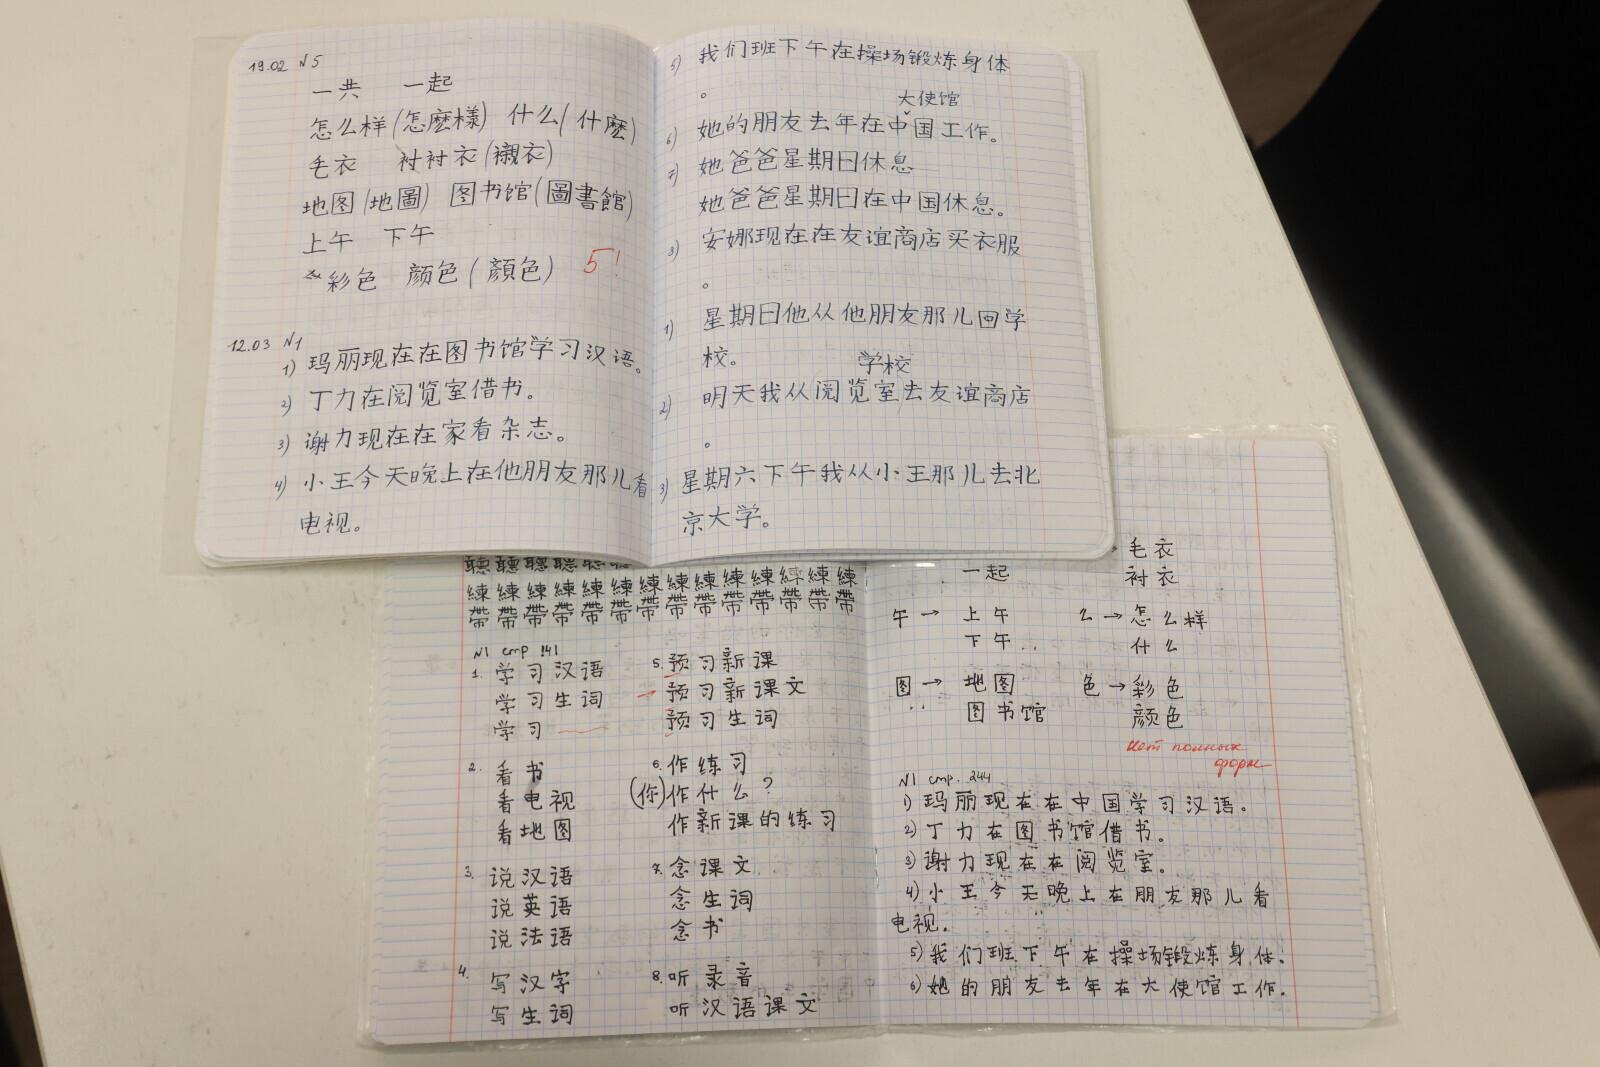 19.02 N5
一共 一起
怎么样(怎麽樣) 什么(什麽)
毛衣 衬衬衣(襯衣)
地图(地圖) 图书馆(圖書館)
上午 下午
彩色 颜色(顏色) 5!
12.03 N1
1) 玛丽现在在图书馆学习汉语。
2) 丁力在阅览室借书。
3) 谢力现在在家看杂志。
4) 小王今天晚上在他朋友那儿看
电视。
5) 我们班下午在操场锻炼身体
。
大使馆
6) 她的朋友去年在中国工作。
7) 她爸爸星期日休息
她爸爸星期日在中国休息。
8) 安娜现在在友谊商店买衣服
。
1) 星期日他从他朋友那儿回学
校。
学校
2) 明天我从阅览室去友谊商店
。
3) 星期六下午我从小王那儿去北
京大学。
聽聽聽聽聽聽
練練練練練練練練練練練練練練
帶帶帶帶帶帶帶帶帶帶帶帶帶帶
N1 стр 141
1. 学习汉语
学习生词
学习
2. 看书
看电视
看地图
3. 说汉语
说英语
说法语
4. 写汉字
写生词
5. 预习新课
预习新课文
预习生词
6. 作练习
(你)作什么?
作新课的练习
7. 念课文
念生词
念书
8. 听录音
听汉语课文
一起
→ 毛衣
衬衣
午 → 上午
下午
么 → 怎么样
什么
图 → 地图
图书馆
色 → 彩色
颜色
Нет полных
форм
N1 стр. 244
1) 玛丽现在在中国学习汉语。
2) 丁力在图书馆借书。
3) 谢力现在在阅览室。
4) 小王今天晚上在朋友那儿看
电视.
5) 我们班下午在操场锻炼身体.
6) 她的朋友去年在大使馆工作.